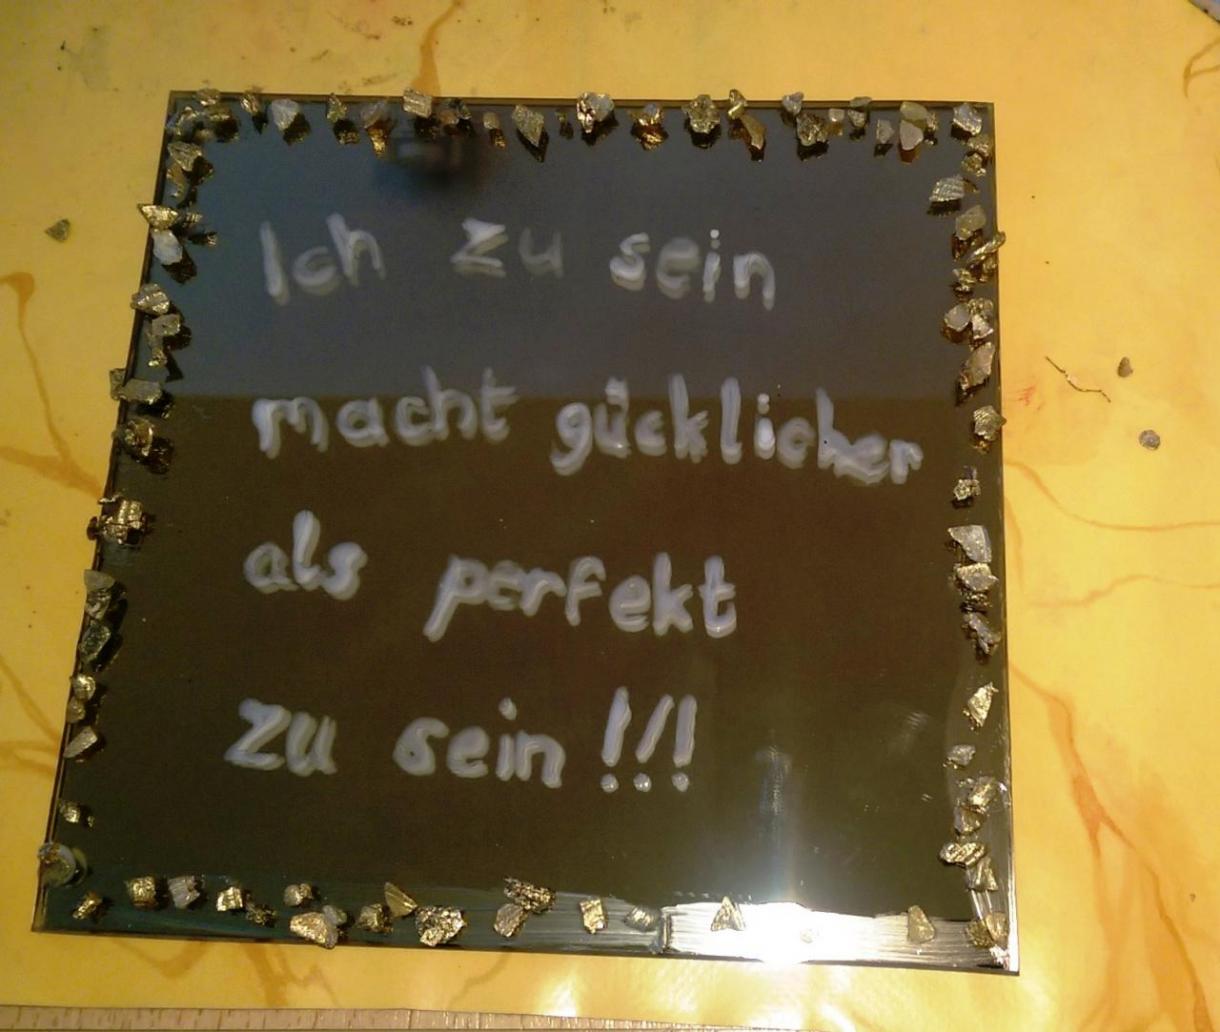 Ich zu sein
macht gücklicher
als perfekt
zu sein!!!